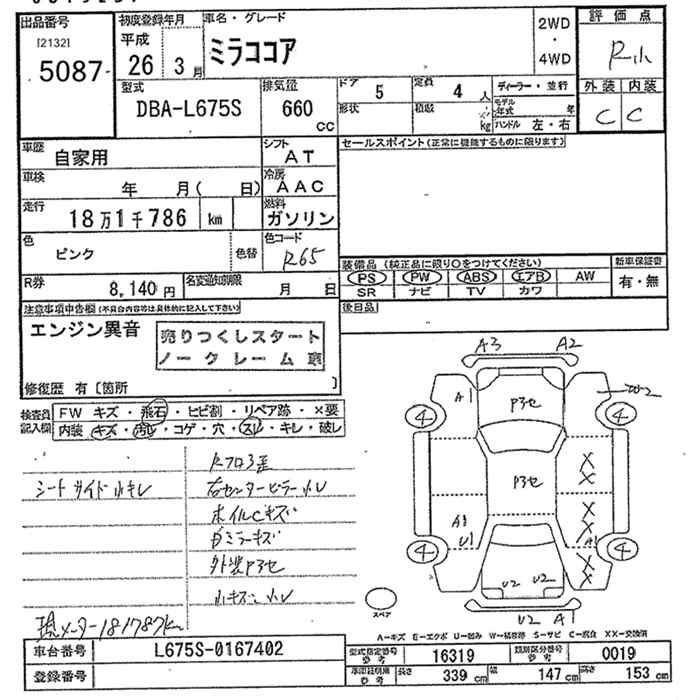 出品番号
[2132]
5087
初度登録年月
平成
26 3月
車名・グレード
ミラココア
2WD
・
4WD
評価点
R小
外装 内装
C C
型式
DBA-L675S
排気量
660
cc
ドア 5
形状
定員 4 人
積載 kg
ディーラー・並行
モデル年式 年
ハンドル 左・右
車歴
自家用
シフト
AT
セールスポイント(正常に機能するものに限ります)
車検
年 月( 日)
冷房
AAC
走行
18万1千786 km
燃料
ガソリン
色
ピンク
色替
色コード
R65
装備品(純正品に限り○をつけてください)
PS PW ABS エアB AW
SR ナビ TV カワ
新車保証書
有・無
R券
8,140円
名変通知期限
月 日
後日品
注意事項申告欄(不具合内容等は具体的に記入して下さい)
エンジン異音
売りつくしスタート
ノークレーム車
修復歴 有〔箇所 〕
検査員記入欄
FW キズ・飛石・ヒビ割・リペア跡・×要
内装 キズ・汚れ・コゲ・穴・スレ・キレ・破レ
シートサイド小キレ
Rフロア歪
右センターピラー小U
ホイルCキズ
Dミラーキズ
外装P3セ
小キズ・小U
現メーター181787km
A3 A2
A1
P3セ
W2
4 4
P3セ
X
X
X
A1
U1
X
A1
X
X
4 4
U2 U2
U2 A1
スペア
A-キズ E-エクボ U-凹み W-補修跡 S-サビ C-腐食 XX-交換済
車台番号
L675S-0167402
登録番号
型式指定番号
参考
16319
類別区分番号
参考
0019
車両諸元
参考
長さ 339 cm
幅 147 cm
高さ 153 cm